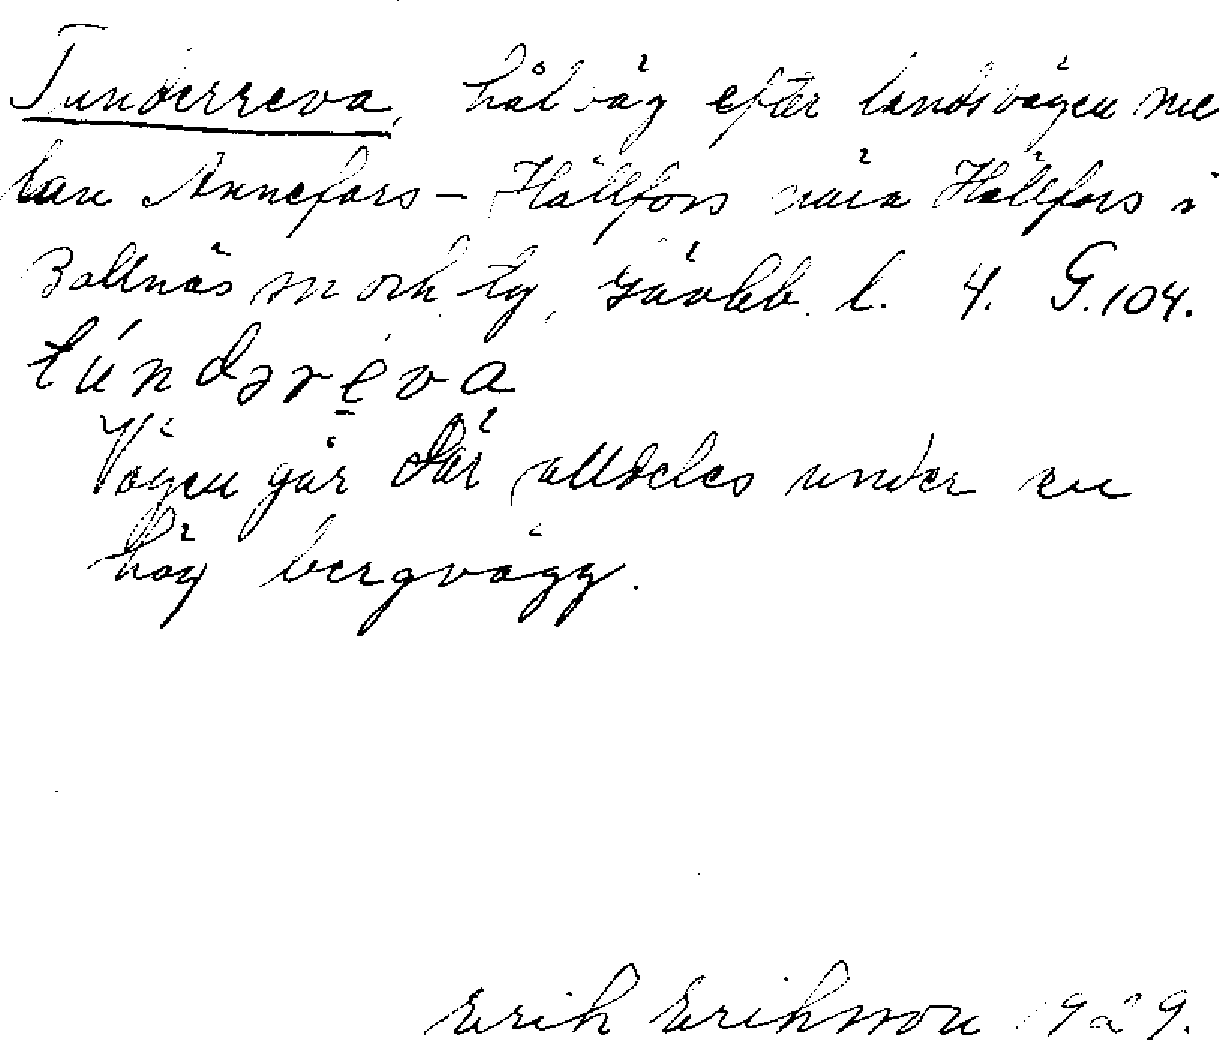 Tunderreva, hålväg efter landsvägen me
lan Annefors – Hällfors nära Hällfors i
Bollnäs sn och tg, Gävleb. l. 4. G. 104.
túndəre̱va
Vägen går där alldeles under en
hög bergvägg.
Erik Eriksson 1929.